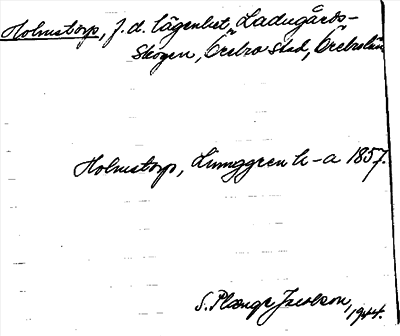 Holmstorp, f.d. lägenhet, Ladugårds-
skogen, Örebro stad, Örebro län
Holmstorp, Ljunggren h-a 1857.
S. Plænge Jacobson, 1944.